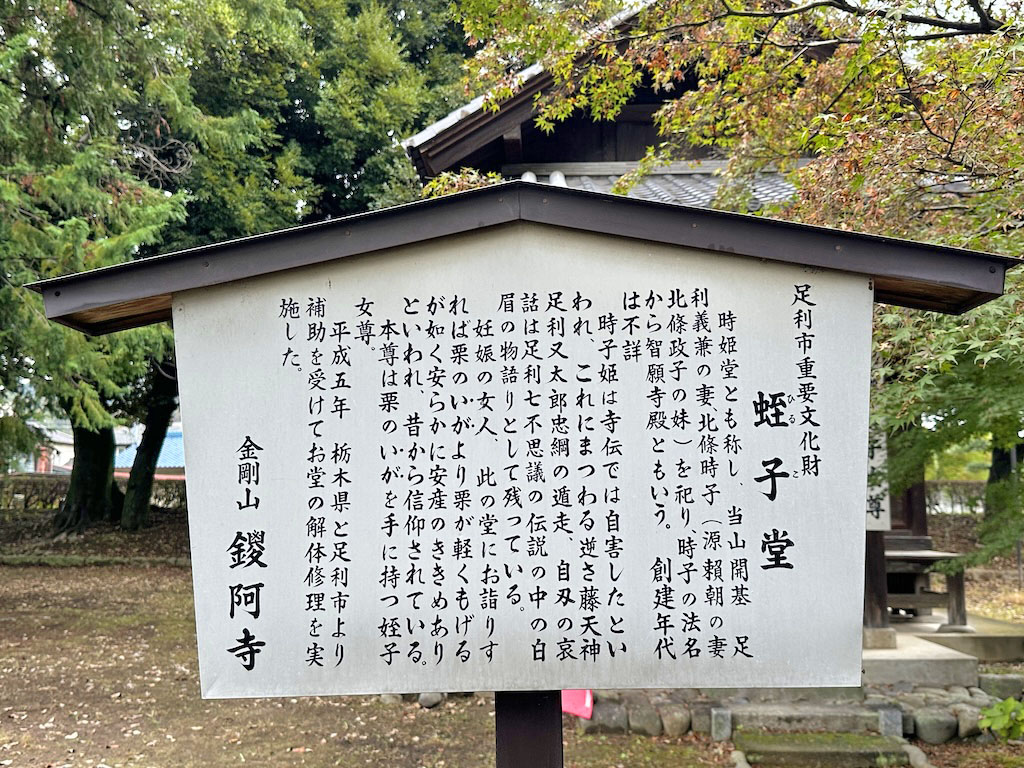 足利市重要文化財
蛭子堂
ひる こ
時姫堂とも称し、当山開基 足
利義兼の妻、北條時子（源頼朝の妻
北條政子の妹）を祀り、時子の法名
から智願寺殿ともいう。 創建年代
は不詳
時子姫は寺伝では自害したとい
われ、これにまつわる逆さ藤天神
足利又太郎忠綱の遁走、自刃の哀
話は足利七不思議の伝説の中の白
眉の物語りとして残っている。
妊娠の女人、此の堂にお詣りす
れば栗のいがより栗が軽くもげる
が如く安らかに安産のききめあり
といわれ、昔から信仰されている。
本尊は栗のいがを手に持つ姪子
女尊。
平成五年 栃木県と足利市より
補助を受けてお堂の解体修理を実
施した。
金剛山 鑁阿寺
尊